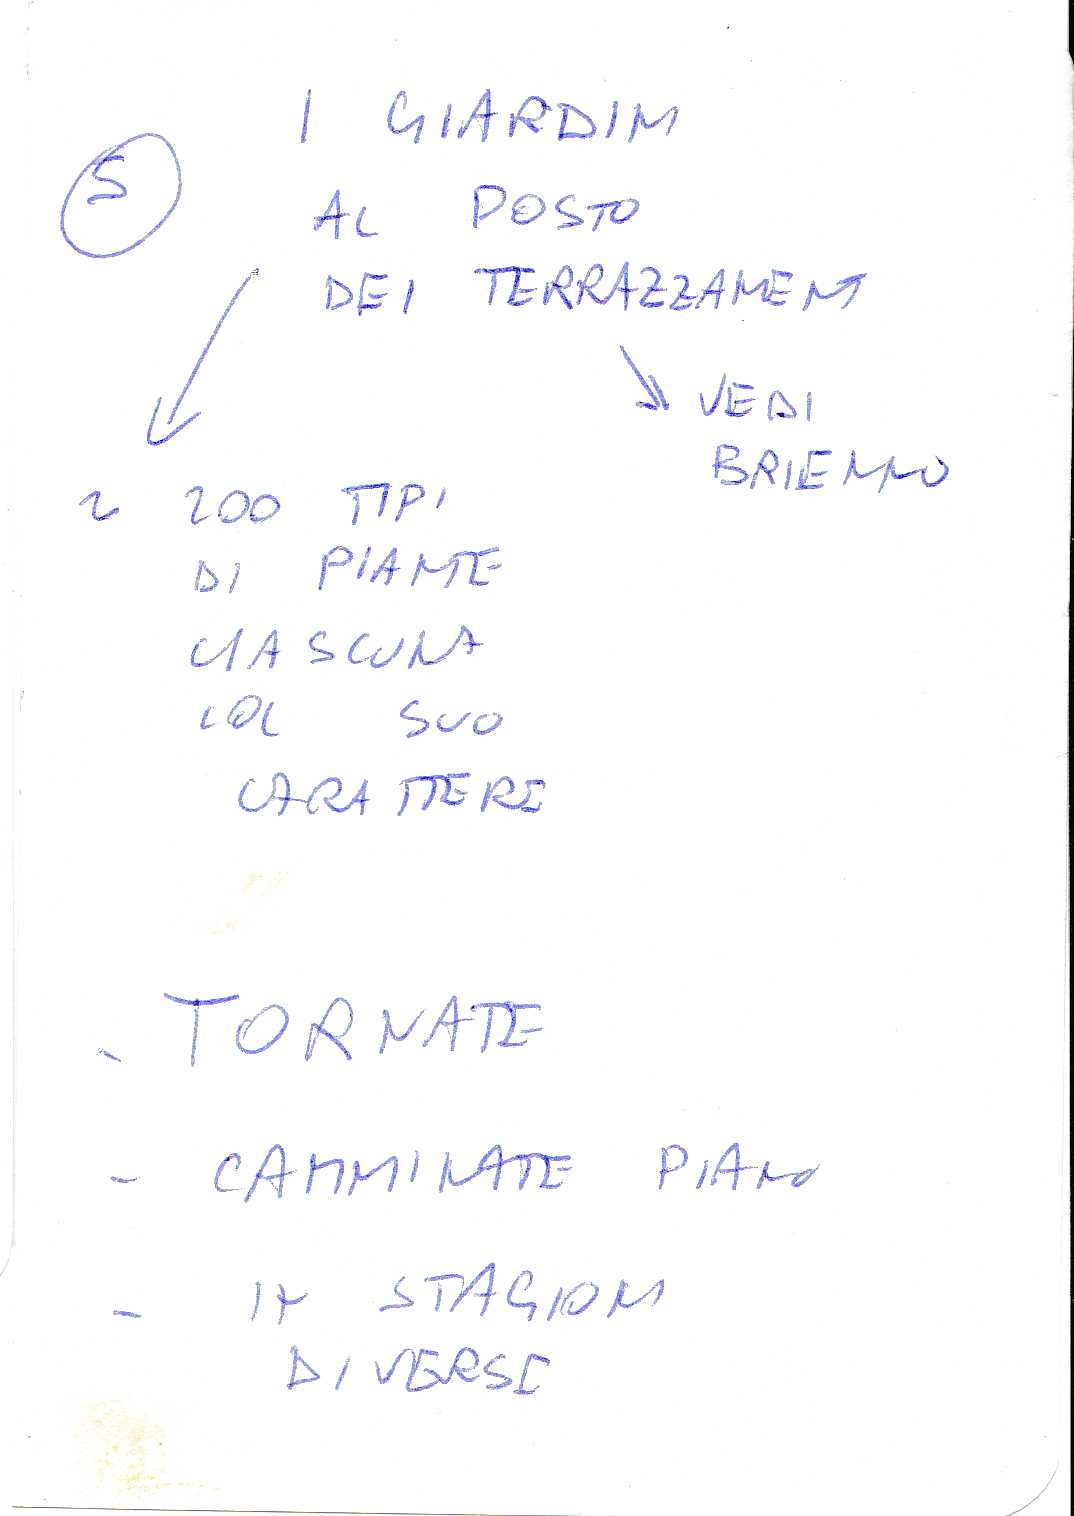 5
I GIARDINI
AL POSTO
DEI TERRAZZAMENTI
VEDI
BRIENNO
~ 200 TIPI
DI PIANTE
CIASCUNA
COL SUO
CARATTERE
- TORNATE
- CAMMINATE PIANO
- IN STAGIONI
DIVERSE